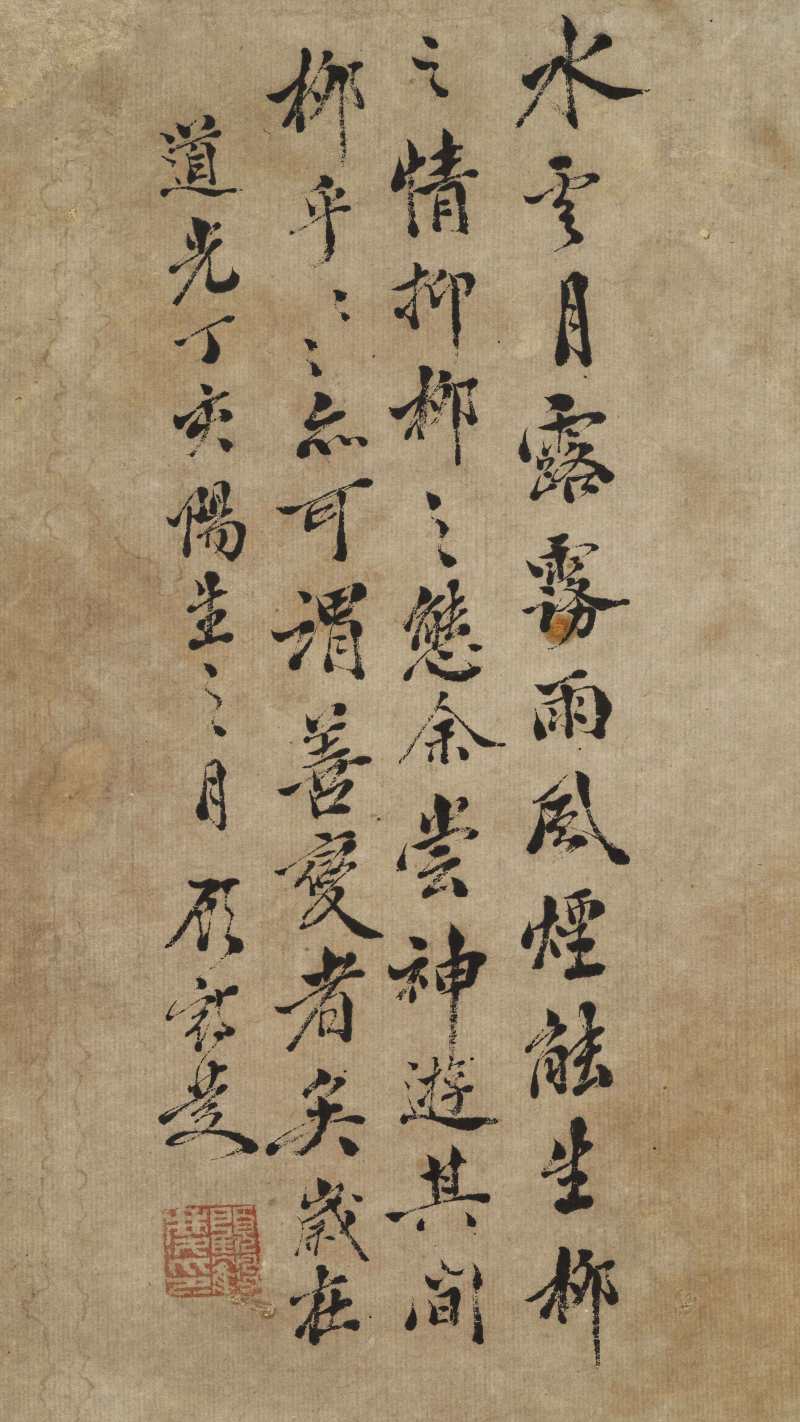 水雲月露霧雨風煙能生柳
之情抑柳之態余嘗神遊其間
柳乎〻〻亦可謂善變者矣歲在
道光丁亥陽生之月 顧鶴慶